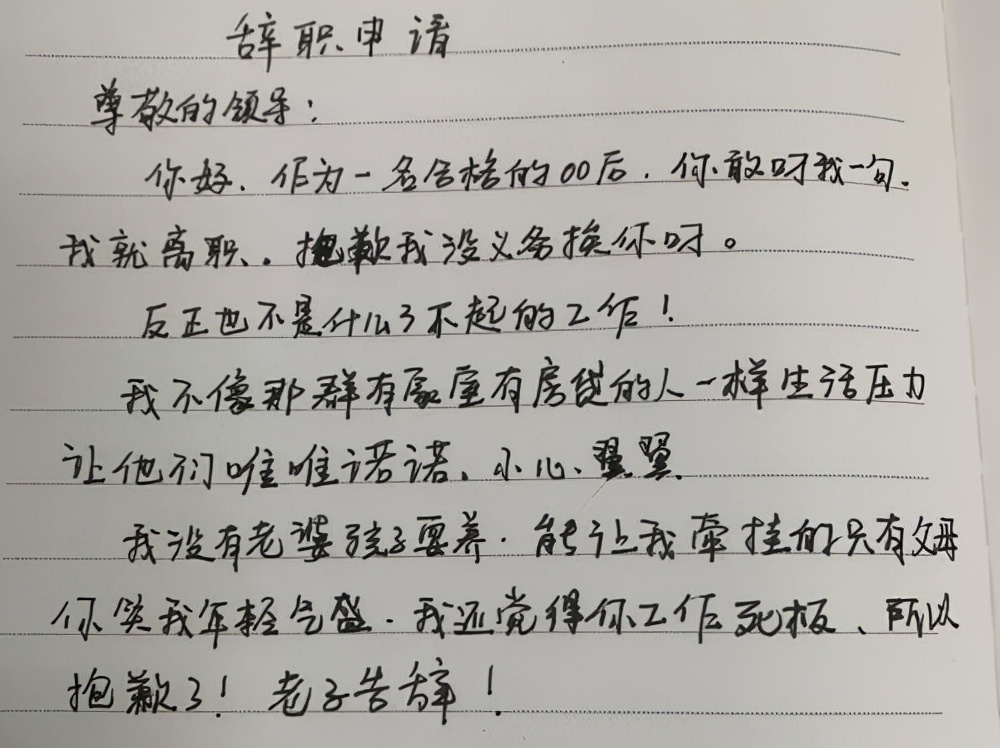 辞职申请
尊敬的领导：
你好、作为一名合格的00后，你敢呀我一句、
我就离职。抱歉我没义务挨你呀。
反正也不是什么了不起的工作！
我不像那群有家室有房贷的人一样生活压力
让他们唯唯诺诺、小心翼翼
我没有老婆孩子要养，能让我牵挂的只有父母
你笑我年轻气盛，我还觉得你工作死板、所以
抱歉了！老子告辞！